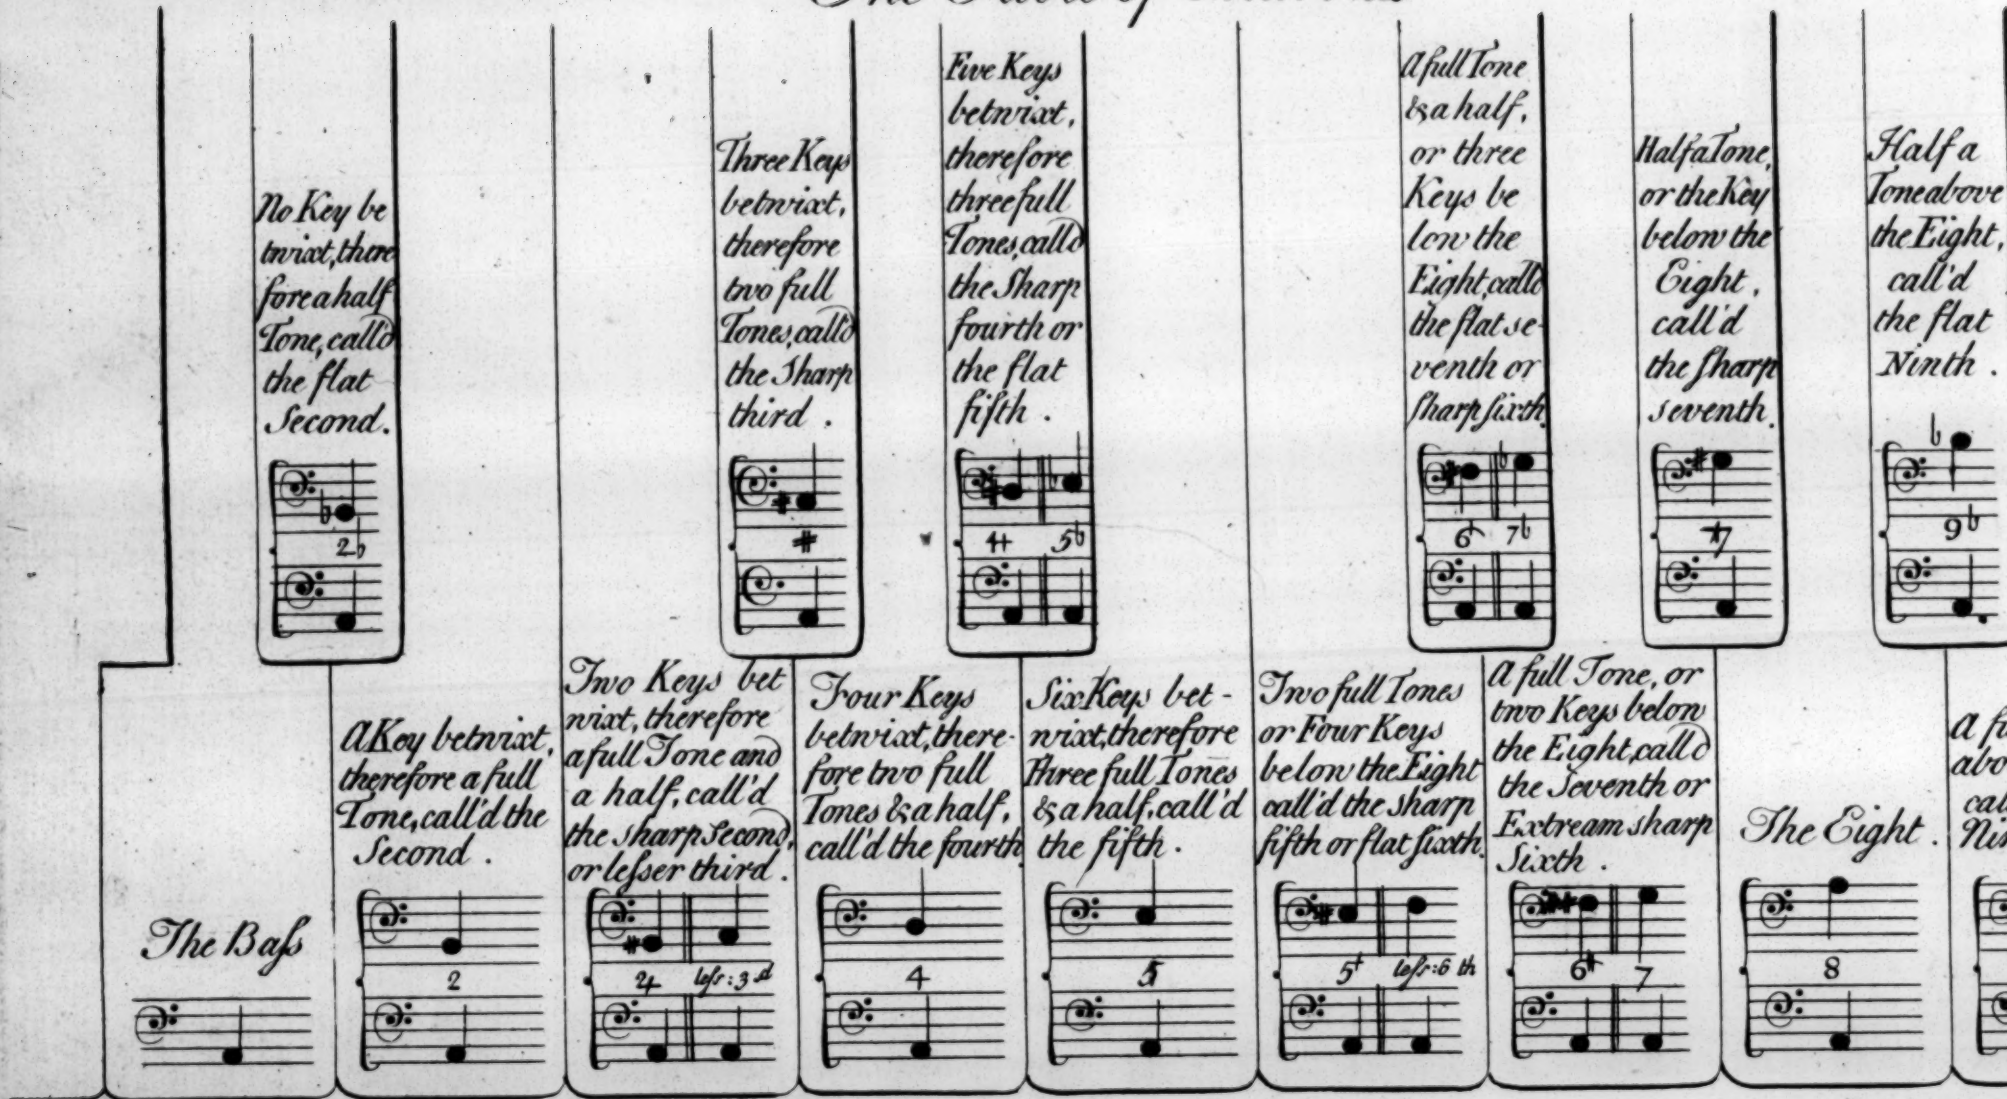 The Table of
No Key be
twixt, there
fore a half
Tone, call'd
the flat
Second.
2b
Three Keys
betwixt,
therefore
two full
Tones, call'd
the Sharp
third.
#
Five Keys
betwixt,
therefore
three full
Tones, call'd
the Sharp
fourth or
the flat
fifth.
4+ 5b
A full Tone
& a half,
or three
Keys be
low the
Eight, call'd
the flat se-
venth or
sharp sixth.
6+ 7b
Half a Tone,
or the Key
below the
Eight,
call'd
the sharp
seventh.
7
Half a
Tone above
the Eight,
call'd
the flat
Ninth.
9b
The Bass
A Key betwixt,
therefore a full
Tone, call'd the
Second.
2
Two Keys bet
wixt, therefore
a full Tone and
a half, call'd
the sharp Second,
or lesser third.
2+ less: 3d
Four Keys
betwixt, there-
fore two full
Tones & a half,
call'd the fourth
4
Six Keys bet-
wixt, therefore
Three full Tones
& a half, call'd
the fifth.
5
Two full Tones
or Four Keys
below the Eight
call'd the sharp
fifth or flat sixth.
5+ less: 6th
A full Tone, or
two Keys below
the Eight, call'd
the Seventh or
Extream sharp
Sixth.
6# 7
The Eight.
8
A fu
abo
cal
Nin